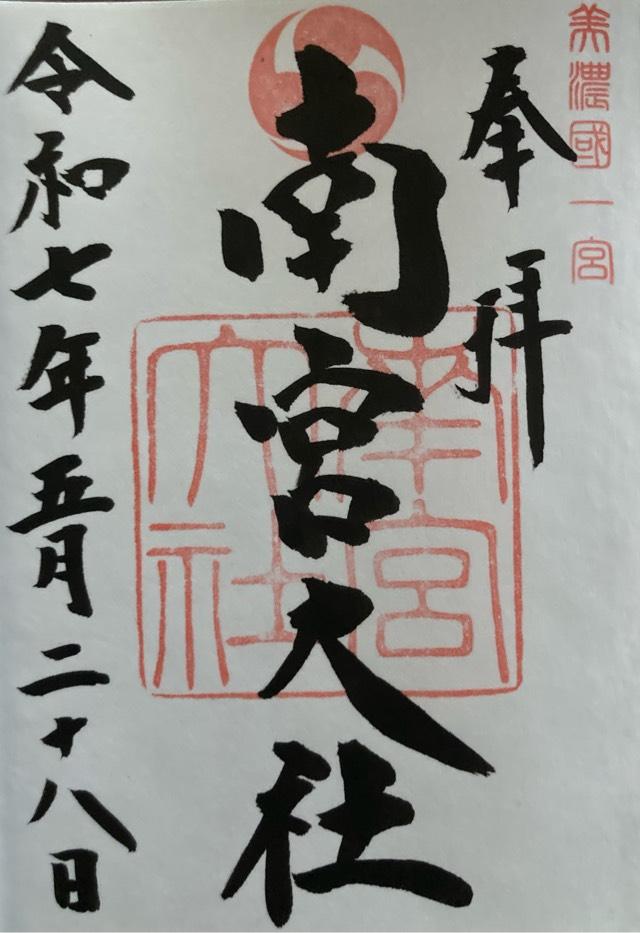 美濃國一宮
奉拝
南宮大社
南宮
大社
令和七年五月二十八日